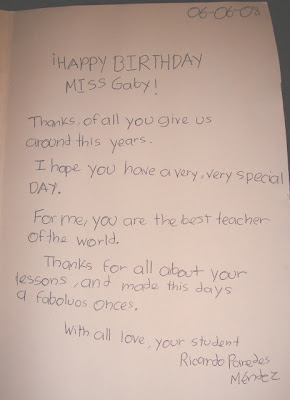 06-06-08
¡HAPPY BIRTHDAY
MISS Gaby!
Thanks, of all you give us
around this years.
I hope you have a very, very special
DAY.
For me, you are the best teacher
of the world.
Thanks for all about your
lessons, and made this days
a faboluos onces.
With all love, your student
Ricardo Paredes
Méndez